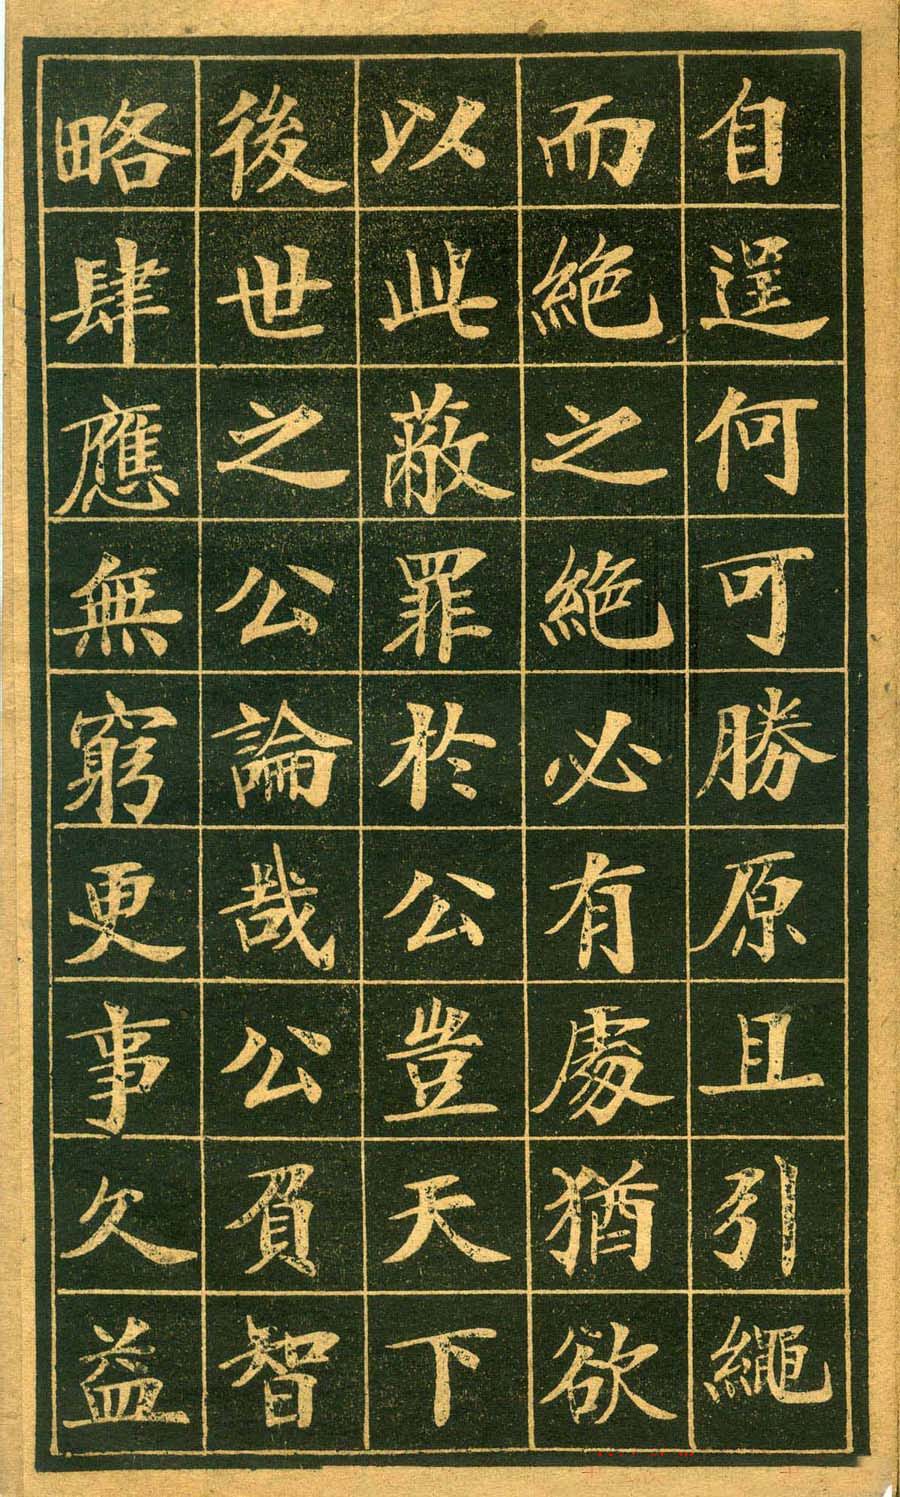 自逞何可勝原且引繩
而絶之絶必有處猶欲
以此蔽罪於公豈天下
後世之公論哉公負智
略肆應無窮更事久益